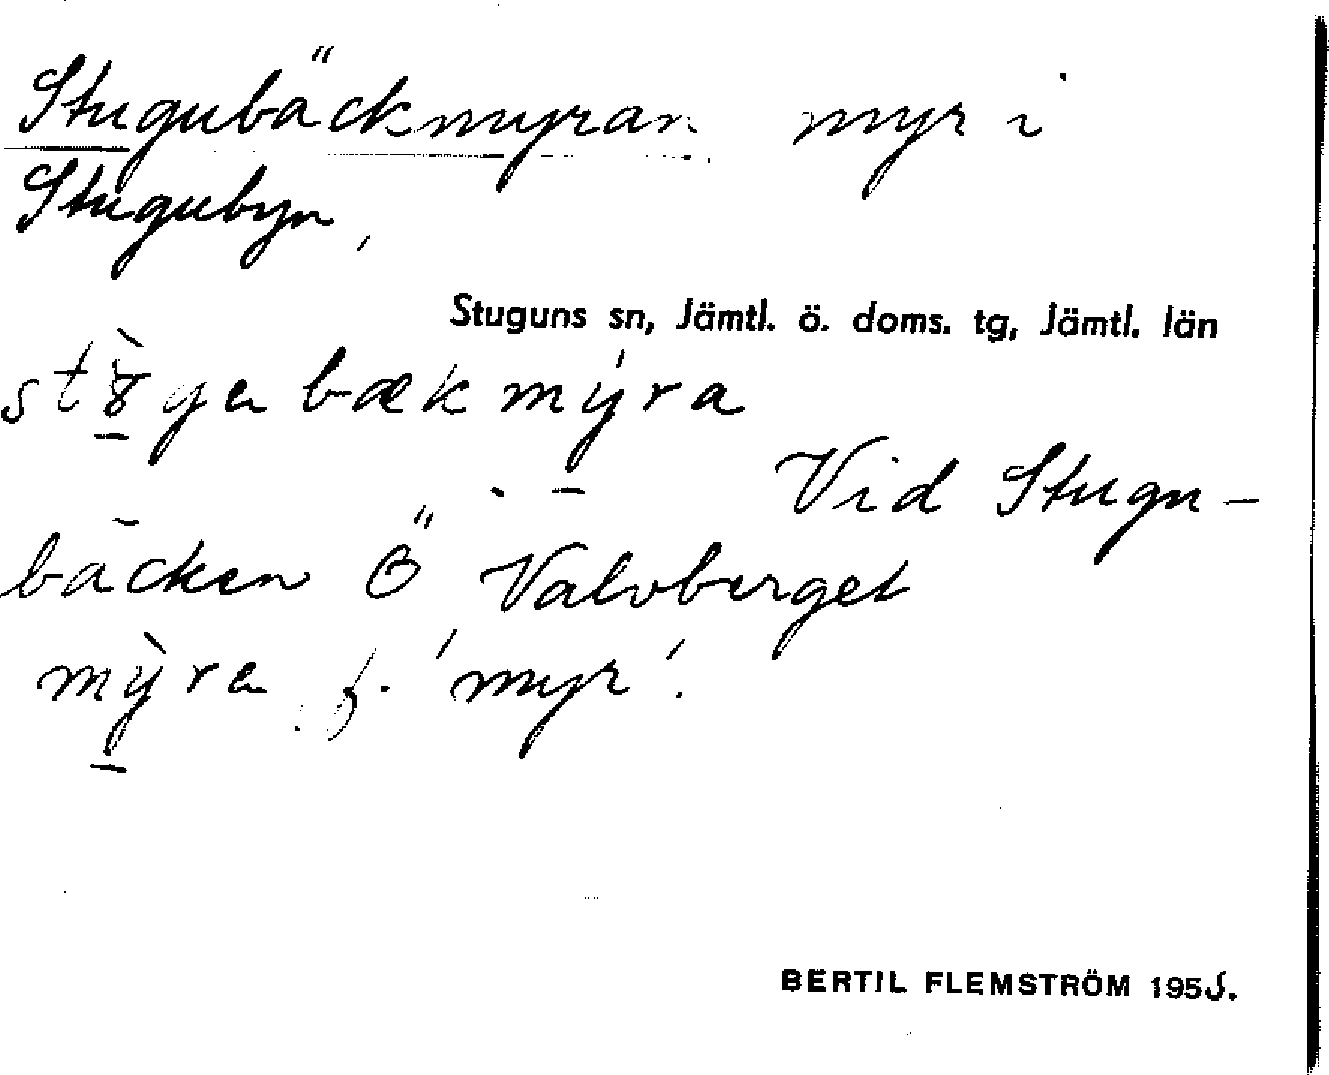 Stugubäckmyran myr i
Stugubyn,
Stuguns sn, Jämtl. ö. doms. tg, Jämtl. län
bækmýra
Vid Stugu-
bäcken Ö Valvberget
mỳra f. 'myr'.
BERTIL FLEMSTRÖM 195